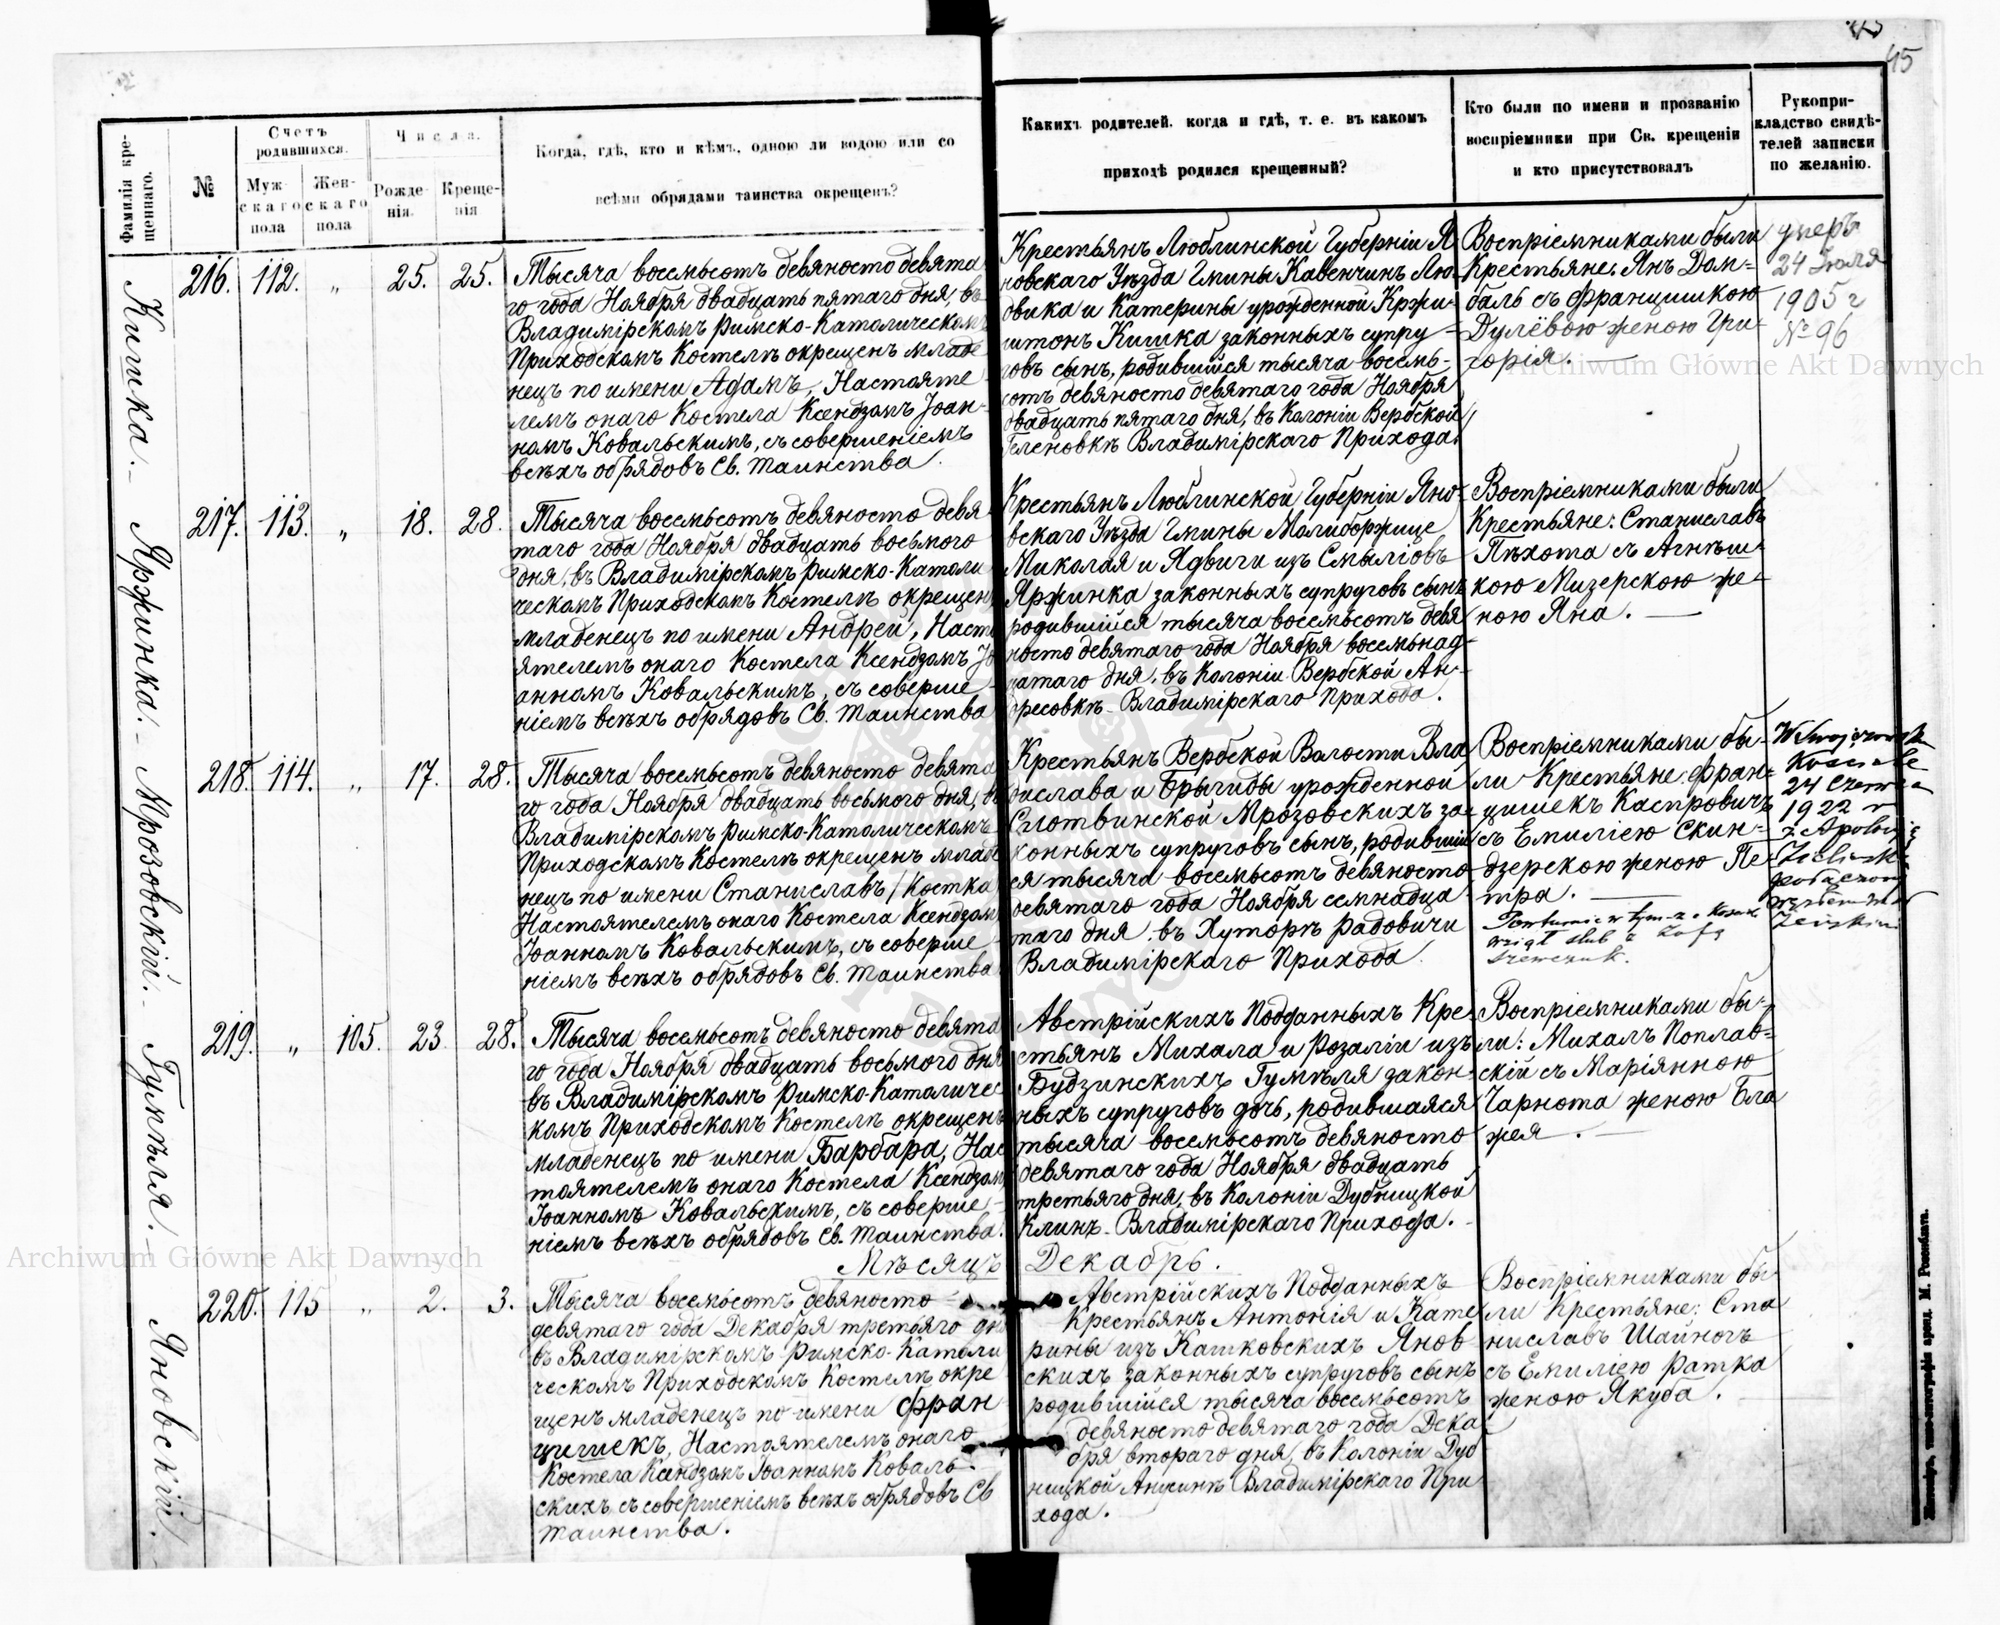 45
Фамилія крещеннаго.
№
Счетъ родившихся.
Мужскаго пола
Женскаго пола
Числа.
Рожденія.
Крещенія
Когда, гдѣ, кто и кѣмъ, одною ли водою или со
всѣми обрядами таинства окрещенъ?
Какихъ родителей. когда и гдѣ, т. е. въ какомъ
приходѣ родился крещенный?
Кто были по имени и прозванію
воспріемники при Св. крещеніи
и кто присутствовалъ
Рукопри-
кладство свидѣ-
телей записки
по желанію.
Кишка.
216. 112. „ 25. 25.
Тысяча восемьсотъ девяносто девята
го года Ноября двадцать пятаго дня, въ
Владимірскомъ Римско-Католическомъ
Приходскомъ Костелѣ окрещенъ младе
нецъ по имени Адамъ, Настояте
лемъ онаго Костела Ксендзомъ Іоан-
номъ Ковальскимъ, съ совершеніемъ
всѣхъ обрядовъ Св. Таинства.
Крестьянъ Люблинской Губерніи Я
новскаго Уѣзда Гмины Кавенчинъ Лю-
довика и Катерины урожденной Кржи-
штонъ Кишка законныхъ супру-
говъ сынъ, родившійся тысяча восемь-
сотъ девяносто девятаго года Ноября
двадцать пятаго дня, въ Колоніи Вербской
Геленовкѣ Владимірскаго Прихода.
Воспріемниками были
Крестьяне: Янъ Дом-
баль съ Францишкою
Дулёвою женою Гри-
горія.
умеръ
24 Іюля
1905 г
№ 96
Archiwum Główne Akt Dawnych
Яржинка.
217. 113. „ 18. 28.
Тысяча восемьсотъ девяносто девя
таго года Ноября двадцать восьмого
дня, въ Владимірскомъ Римско-Католи
ческомъ Приходскомъ Костелѣ окрещенъ
младенецъ по имени Андрей, Насто
ятелемъ онаго Костела Ксендзомъ Іо
анномъ Ковальскимъ, съ соверше-
ніемъ всѣхъ обрядовъ Св. Таинства
Крестьянъ Люблинской Губерніи Яно-
вскаго Уѣзда Гмины Молиборжице
Миколая и Ядвиги изъ Смыліовъ
Яржинка законныхъ супруговъ сынъ
родившійся тысяча восемьсотъ девя
носто девятаго года Ноября восемьнад-
цатаго дня, въ Колоніи Вербской Ан-
дресовкѣ Владимірскаго Прихода.
Воспріемниками были
Крестьяне: Станиславъ
Пѣхота съ Агнѣш-
кою Мизерскою же-
ною Яна.
Мрозовскій.
218. 114. „ 17. 28.
Тысяча восемьсотъ девяносто девята
го года Ноября двадцать восьмого дня, въ
Владимірскомъ Римско-Католическомъ
Приходскомъ Костелѣ окрещенъ младе
нецъ по имени Станиславъ / Костка
Настоятелемъ онаго Костела Ксендзом
Іоанномъ Ковальскимъ, съ соверше-
ніемъ всѣхъ обрядовъ Св. Таинства
Крестьянъ Вербской Волости Вла
дислава и Брыгиды урожденной
Слотвинской Мрозовскихъ за-
конныхъ супруговъ сынъ, родивший
ся тысяча восемьсотъ девяносто
девятаго года Ноября семнадца-
таго дня, въ Хуторѣ Радовичи
Владимірскаго Прихода
Воспріемниками бы-
ли Крестьяне: Фран-
цишекъ Каспровичъ
съ Емиліею Скин-
дзерскою женою Пе-
тра.
wziął ślub z Zofią
Szewczuk.
24 Czerwca
1922 r
z Apolonią
Гумѣля.
219. „ 105. 23 28.
Тысяча восемьсотъ девяносто девята
го года Ноября двадцать восьмого дня
въ Владимірскомъ Римско-Католичес
комъ Приходскомъ Костелѣ окрещенъ
младенецъ по имени Барбара, Нас
тоятелемъ онаго Костела Ксендзом
Іоанномъ Ковальскимъ, съ соверше-
ніемъ всѣхъ обрядовъ Св. Таинства.
Австрійскихъ Подданныхъ Кре-
стьянъ Михала и Розаліи изъ
Будзинскихъ Гумѣля закон-
ныхъ супруговъ дочь, родившаяся
тысяча восемьсотъ девяносто
девятаго года Ноября двадцать
третьяго дня, въ Колоніи Дубницкой
Клинъ Владимірскаго Прихода.
Воспріемниками бы-
ли: Михалъ Поплав-
скій съ Маріянною
Чарнота женою Бла
жея.
Archiwum Główne Akt Dawnych
Мѣсяцъ Декабрь.
Яновскій.
220. 115 „ 2. 3.
Тысяча восемьсотъ девяносто
девятаго года Декабря третьяго дня
въ Владимірскомъ Римско-Католи
ческомъ Приходскомъ Костелѣ окре
щенъ младенецъ по имени Фран
цишекъ, Настоятелемъ онаго
Костела Ксендзомъ Іоанномъ Коваль-
скихъ съ совершеніемъ всѣхъ обрядовъ Св
Таинства.
Австрійскихъ Подданныхъ
Крестьянъ Антонія и Кате
рины изъ Кашковскихъ Янов
скихъ законныхъ супруговъ сынъ
родившійся тысяча восемьсотъ
девяносто девятаго года Дека
бря второго дня, въ Колоніи Дуб
ницкой Анусинѣ Владимірскаго При
хода.
Воспріемниками бы
ли Крестьяне: Ста
ниславъ Шайногъ
съ Емиліею Ратка
женою Якуба.
Житомиръ, типо-литографія аренд. М. Розенблата.